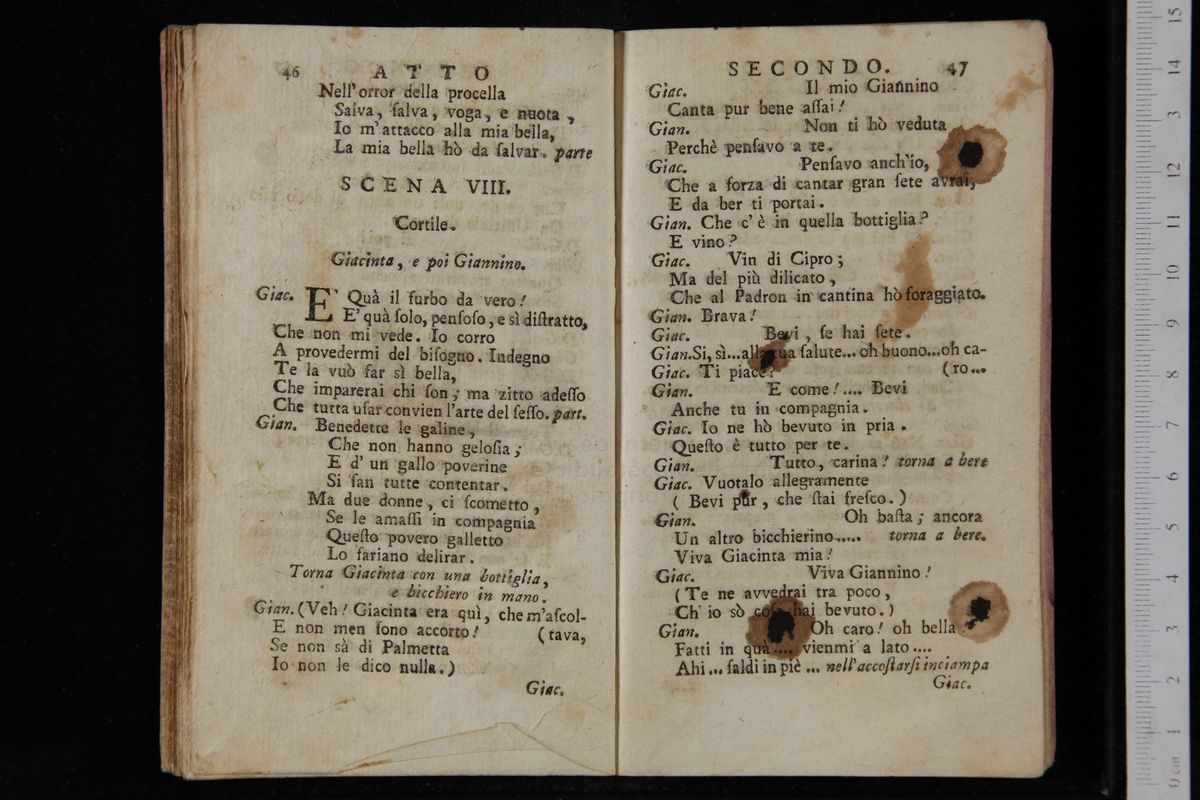 46 ATTO
Nell'orror della procella
Salva, ſalva, voga, e nuota,
Io m'attacco alla mia bella,
La mia bella hò da ſalvar. parte
SCENA VIII.
Cortile.
Giacinta, e poi Giannino.
Giac. E' Quà il furbo da vero!
E' quà ſolo, penſoſo, e sì diſtratto,
Che non mi vede. Io corro
A provedermi del biſogno. Indegno
Te la vuò far sì bella,
Che imparerai chi ſon; ma zitto adeſſo
Che tutta uſar convien l'arte del ſeſſo. part.
Gian. Benedette le galine,
Che non hanno geloſia;
E d' un gallo poverine
Si fan tutte contentar.
Ma due donne, ci ſcometto,
Se le amaſſi in compagnia
Queſto povero galletto
Lo fariano delirar.
Torna Giacinta con una bottiglia,
e bicchiero in mano.
Gian. (Veh! Giacinta era quì, che m'aſcol-
E non men ſono accorto! (tava,
Se non sà di Palmetta
Io non le dico nulla.)
Giac.
SECONDO. 47
Giac. Il mio Giannino
Canta pur bene aſſai!
Gian. Non ti hò veduta
Perchè penſavo a te.
Giac. Penſavo anch'io,
Che a forza di cantar gran ſete avrai,
E da ber ti portai.
Gian. Che c'è in quella bottiglia?
E vino?
Giac. Vin di Cipro;
Ma del più dilicato,
Che al Padron in cantina hò foraggiato.
Gian. Brava!
Giac. Bevi, ſe hai ſete.
Gian. Si, sì... alla tua ſalute... oh buono... oh ca-
Giac. Ti piace? (ro...
Gian. E come!.... Bevi
Anche tu in compagnia.
Giac. Io ne hò bevuto in pria.
Queſto è tutto per te.
Gian. Tutto, carina! torna a bere
Giac. Vuotalo allegramente
( Bevi pur, che ſtai freſco.)
Gian. Oh baſta; ancora
Un altro bicchierino..... torna a bere.
Viva Giacinta mia!
Giac. Viva Giannino!
(Te ne avvedrai tra poco,
Ch' io sò coſa hai bevuto.)
Gian. Oh caro! oh bella!
Fatti in quà.... vienmi a lato....
Ahi... ſaldi in piè... nell'accoſtarſi inciampa
Giac.
0 cm 1 2 3 4 5 6 7 8 9 10 11 12 13 14 15